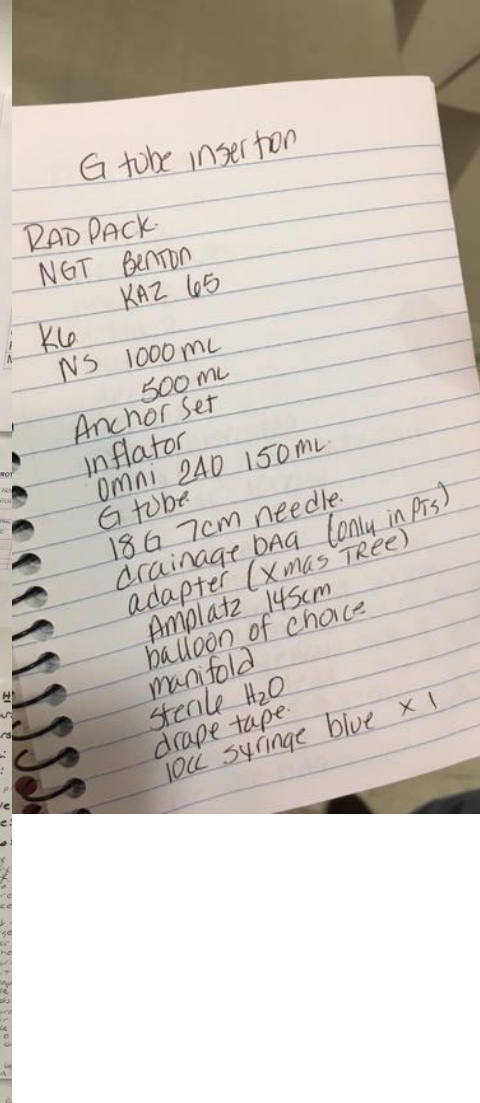 G tube insertion
RAD PACK.
NGT Benton
KAZ 65
K6
NS 1000 mL
500 mL
Anchor set
inflator
omni 240 150 mL.
G tube
18G 7cm needle.
drainage bag (only in PTs)
adapter (Xmas TREE)
Amplatz 145cm
balloon of choice
manifold
sterile H2O
drape tape.
10cc syringe blue x 1